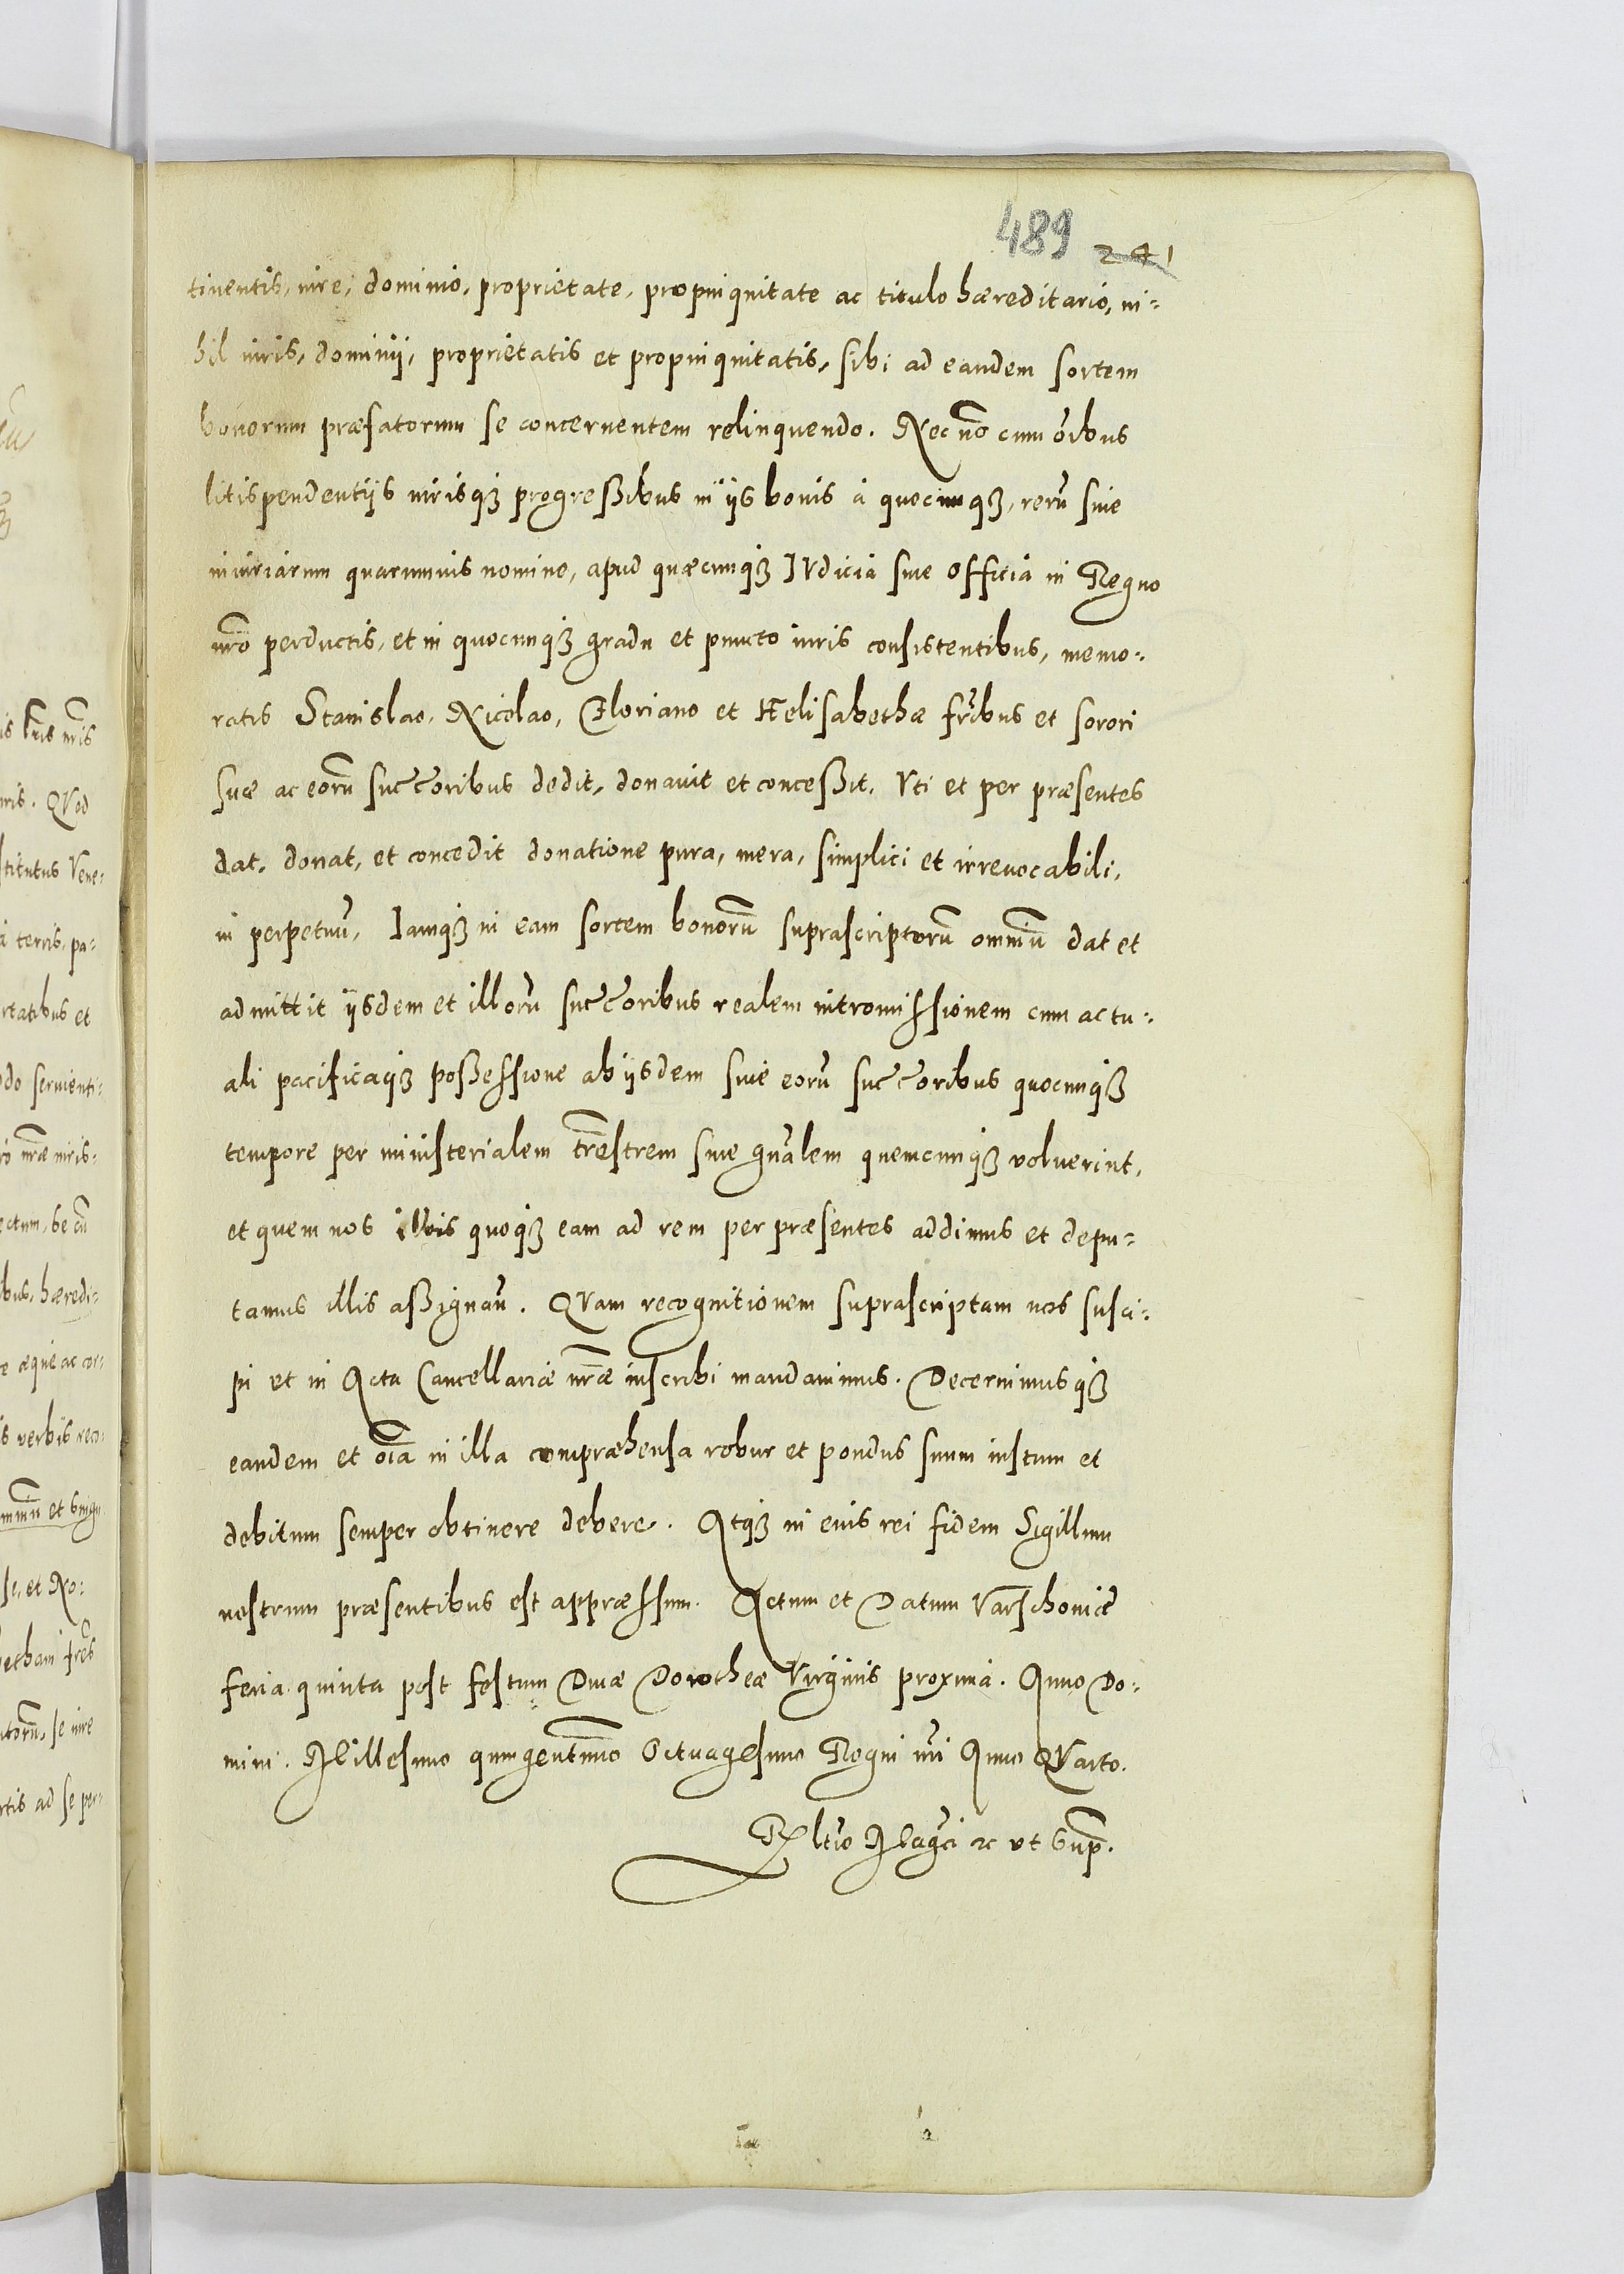 489 241
tinentis, iure, dominio, proprietate, propinquitate ac titulo hæreditario, ni-
hil iuris, dominij, proprietatis et propinquitatis, sibi ad eandem sortem
bonorum præfatorum se concernentem relinquendo. Nec nõ cum oĩbus
litispendentijs iurisqʒ progreßibus in ijs bonis à quocunqʒ, rerũ siue
iniuriarum quarumuis nomine, apud quæcunqʒ IVdicia siue officia in Regno
nrõ perductis, et in quocunqʒ gradu et puncto iuris consistentibus, memo-
ratis Stanislao, Nicolao, Floriano et Helisabethæ frĩbus et sorori
suæ ac eorũ succoribus dedit, donauit et conceßit. Vti et per præsentes
dat, donat, et concedit donatione pura, mera, simplici et irreuocabili,
in perpetuũ, Iamqʒ in eam sortem bonorũ suprascriptorũ omniũ dat et
admittit ijsdem et illorũ succoribus realem intromissionem cum actu-
ali pacificaqʒ poßessione ab ijsdem siue eorũ succoribus quocunqʒ
tempore per ministerialem trẽstrem siue gñalem quemcunqʒ voluerint,
et quem nos illis quoqʒ eam ad rem per præsentes addimus et depu-
tamus illis aßignañ. QVam recognitionem suprascriptam nos susci-
pi et in Acta Cancellariæ nræ inscribi mandauimus. Decernimusqʒ
eandem et oĩa in illa compræhensa robur et pondus suum iustum et
debitum semper obtinere debere. Atqʒ in euis rei fidem Sigillum
nostrum præsentibus est appræssum. Actum et Datum Varschouiæ
feria quinta post festum Diuæ Dorotheæ Virginis proxima. Anno Do-
mini. Millesimo quingentmo Octuagesimo Regni nri Anno QVarto.
Rltio Magci ac vt Sup.